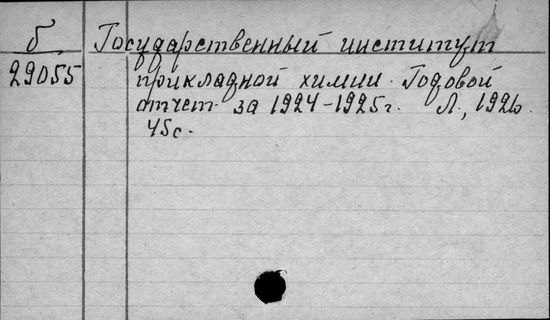 б Государственный институт
29055 прикладной химии. Годовой
отчет за 1924-1925г. Л., 1926.
45с.